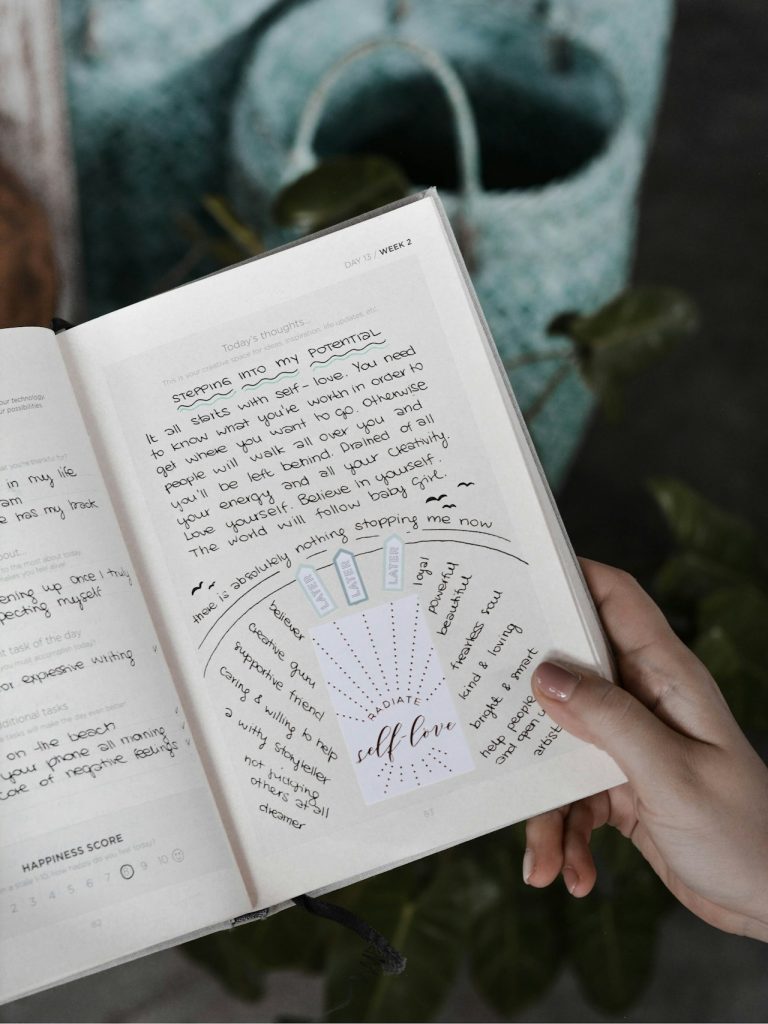 your technology.
r possibilities.
what you're thankful for?
in my life
am
e has my track
out...
to the most about today
makes you feel alive!
ening up once I truly
pecting myself
t task of the day
you must accomplish today?
or expressive writing
ditional tasks
tasks will make the day even better
on the beach
your phone all morning
care of negative feelings
HAPPINESS SCORE
n a scale 1-10, how happy do you feel today?
2 3 4 5 6 7 8 9 10
82
DAY 13 / WEEK 2
Today's thoughts...
This is your creative space for ideas, inspiration, life updates, etc.
STEPPING INTO MY POTENTIAL
It all starts with self-love. You need
to know what you're worth in order to
get where you want to go. Otherwise
people will walk all over you and
you'll be left behind. Drained of all
your energy and all your creativity.
Love yourself. Believe in yourself.
The world will follow baby girl.
there is absolutely nothing stopping me now
LATER
LATER
LATER
believer
creative guru
supportive friend
caring & willing to help
a witty storyteller
not judging
others at all
dreamer
RADIATE
self-love
loyal
powerful
beautiful
fearless soul
kind & loving
bright & smart
help people
and open u
artist
83